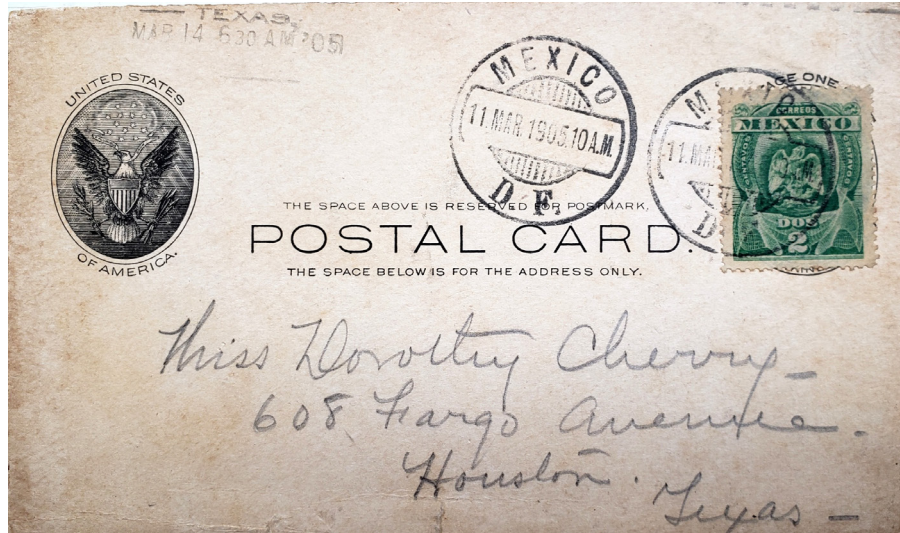 TEXAS,
MAR 14 630 AM '05
UNITED STATES
OF AMERICA.
MEXICO
11.MAR.1905.10 A.M.
D. F.
11.MAR
D
GE ONE
CORREOS
MEXICO
CENTAVOS
CENTAVOS
DOS
2
THE SPACE ABOVE IS RESERVED FOR POSTMARK,
POSTAL CARD.
THE SPACE BELOW IS FOR THE ADDRESS ONLY.
Miss Dorothy Cherry
608 Fargo Avenue.
Houston.
Texas